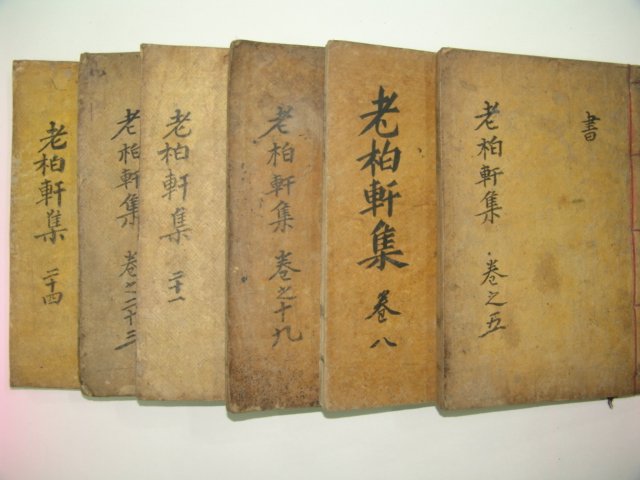 書
老柏軒集 卷之五
老柏軒集 卷八
老柏軒集 卷之十九
老柏軒集 二十一
老柏軒集 卷之二十三
老柏軒集 二十四